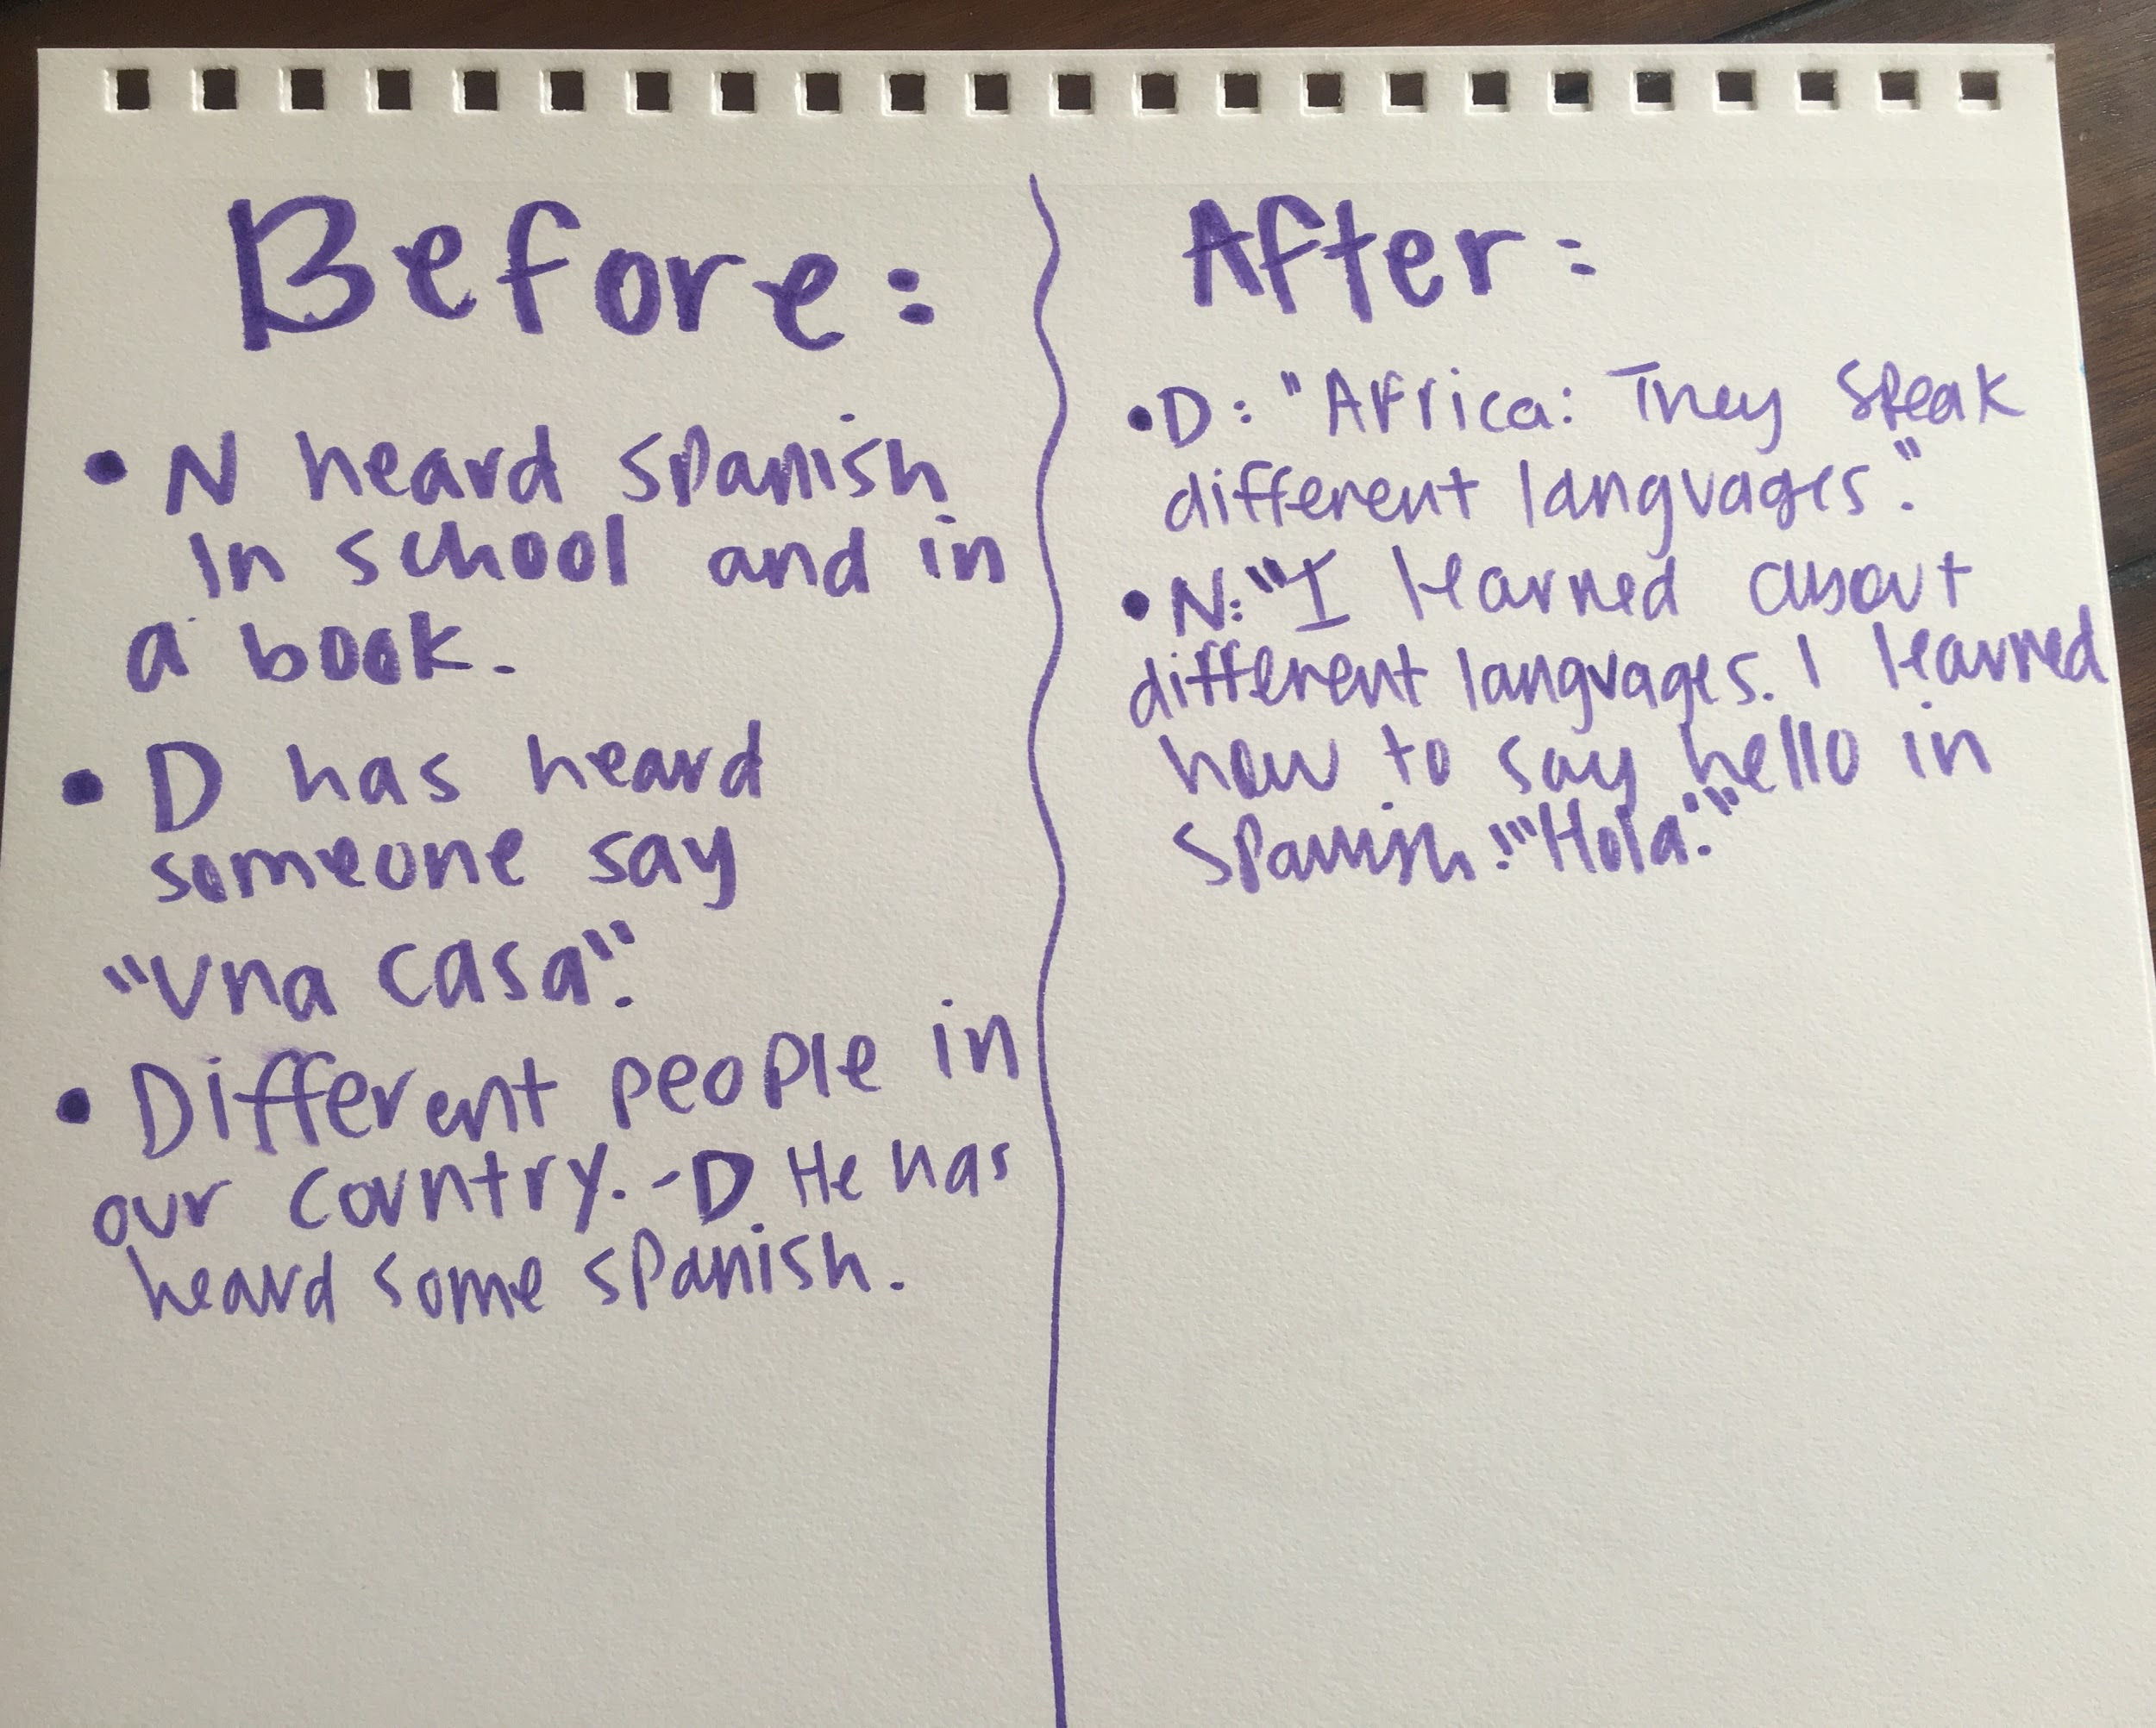 Before:
• N heard Spanish
in school and in
a book.
• D has heard
someone say
"Una casa".
• Different people in
our country. -D He has
heard some Spanish.
After:
• D: "Africa: They speak
different languages".
• N: "I learned about
different languages. I learned
how to say hello in
Spanish: "Hola"."